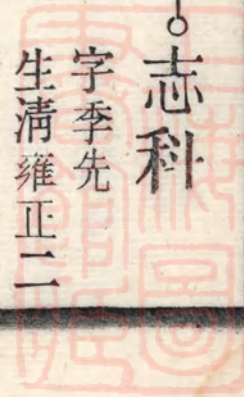 志科
字季先
生清雍正二